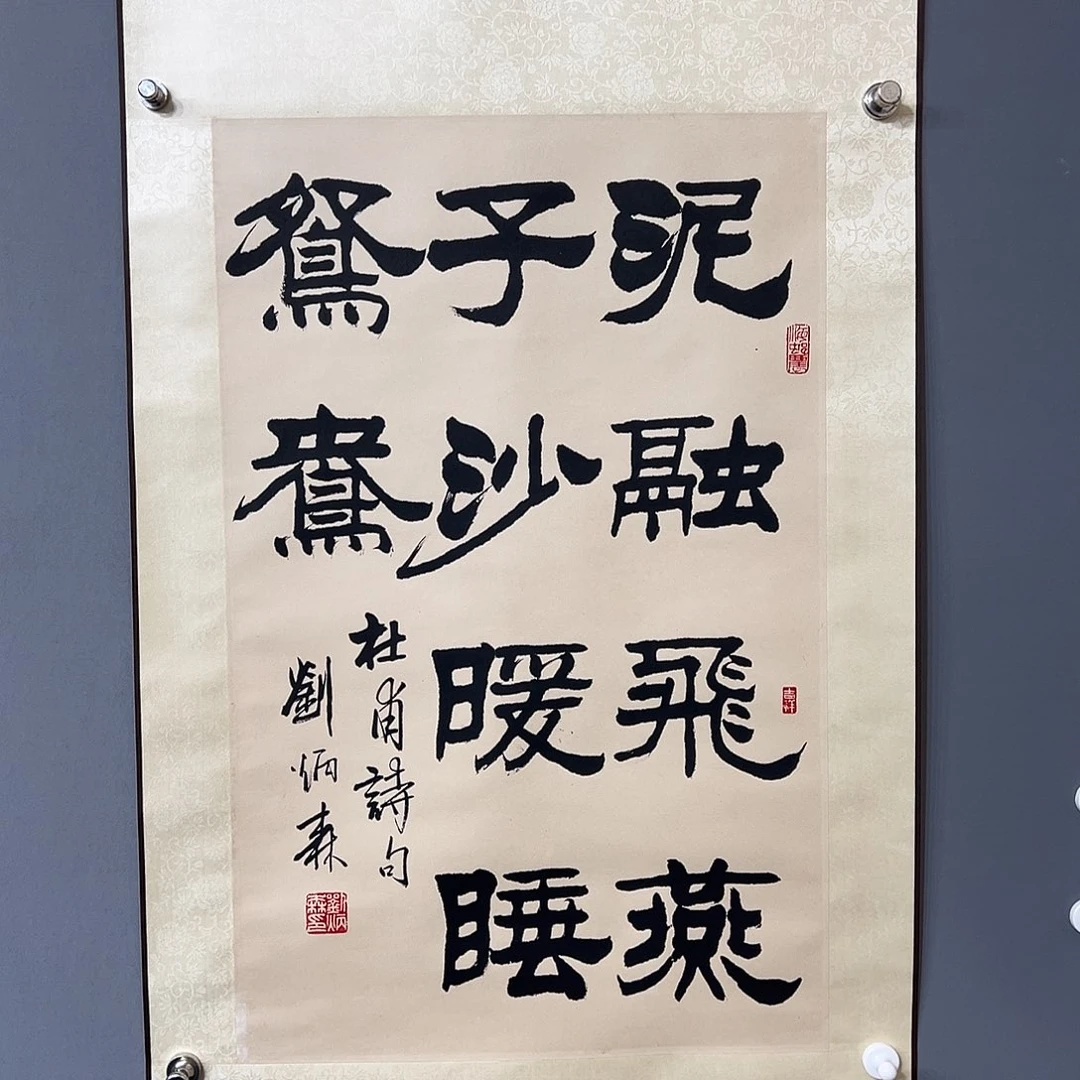 泥融飛燕
子沙暖睡
鴛鴦
杜甫詩句
劉炳森
劉炳森印